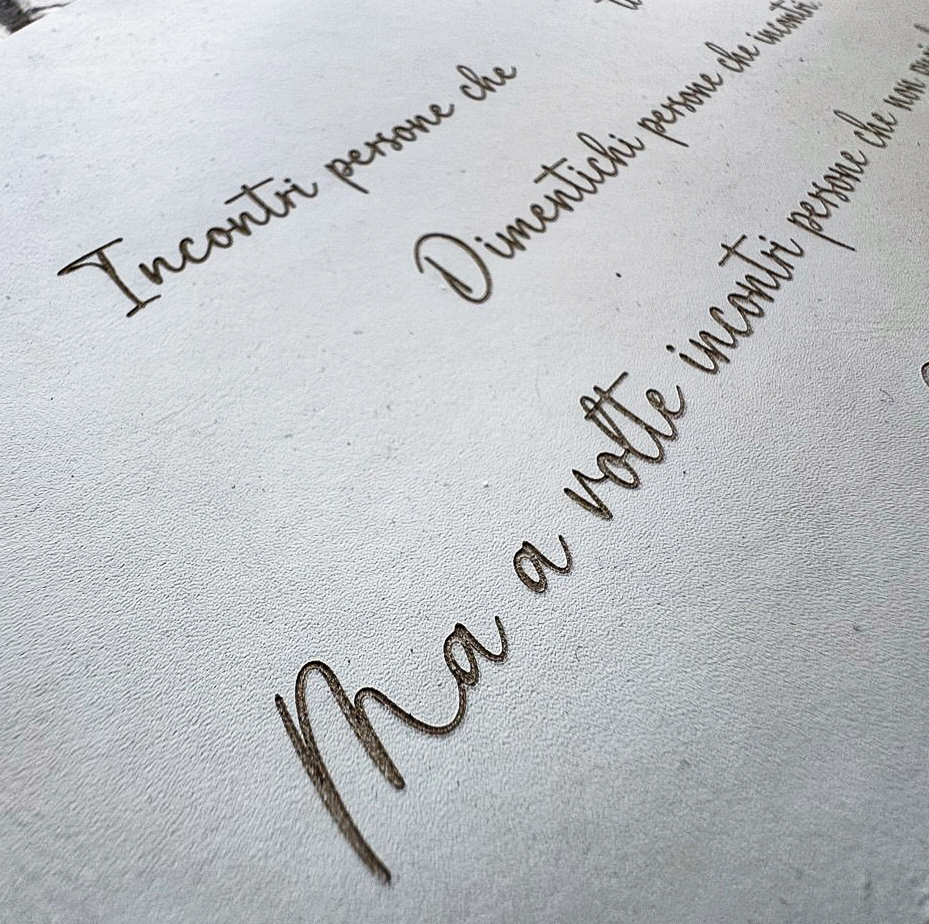 Incontri persone che
Dimentichi persone che incontri.
Ma a volte incontri persone che non